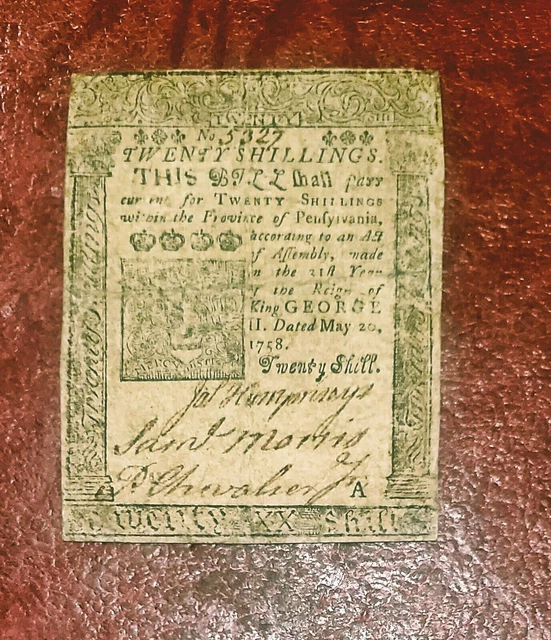 TWENTY
No 5327
TWENTY SHILLINGS.
THIS BILL shall pass
current for TWENTY SHILLINGS
within the Province of Penſylvania,
according to an Act
of Aſſembly, made
in the 31ſt Year
of the Reign of
King GEORGE
II. Dated May 20,
1758.
Twenty Shill.
Jos Humphreys
Saml Morris
P Chevalier Jr
A
Twenty XX Shill